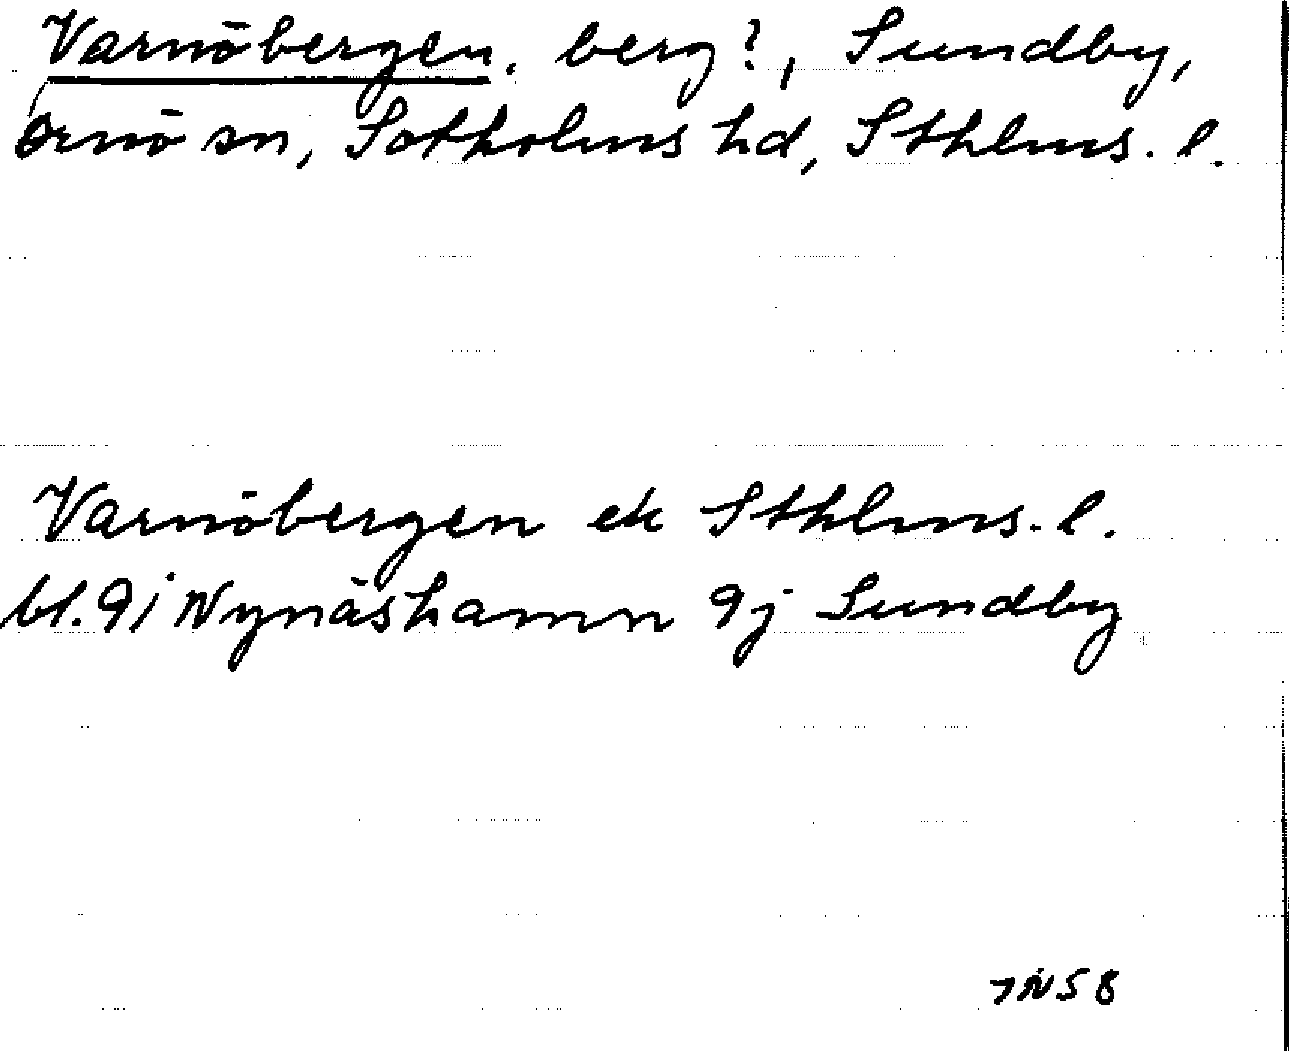 Varnöbergen, berg?, Sundby,
Ornö sn, Sotholms hd, Sthlms. l.
Varnöbergen ek Sthlms. l.
bl. 9i Nynäshamn 9j Sundby
7N5 8